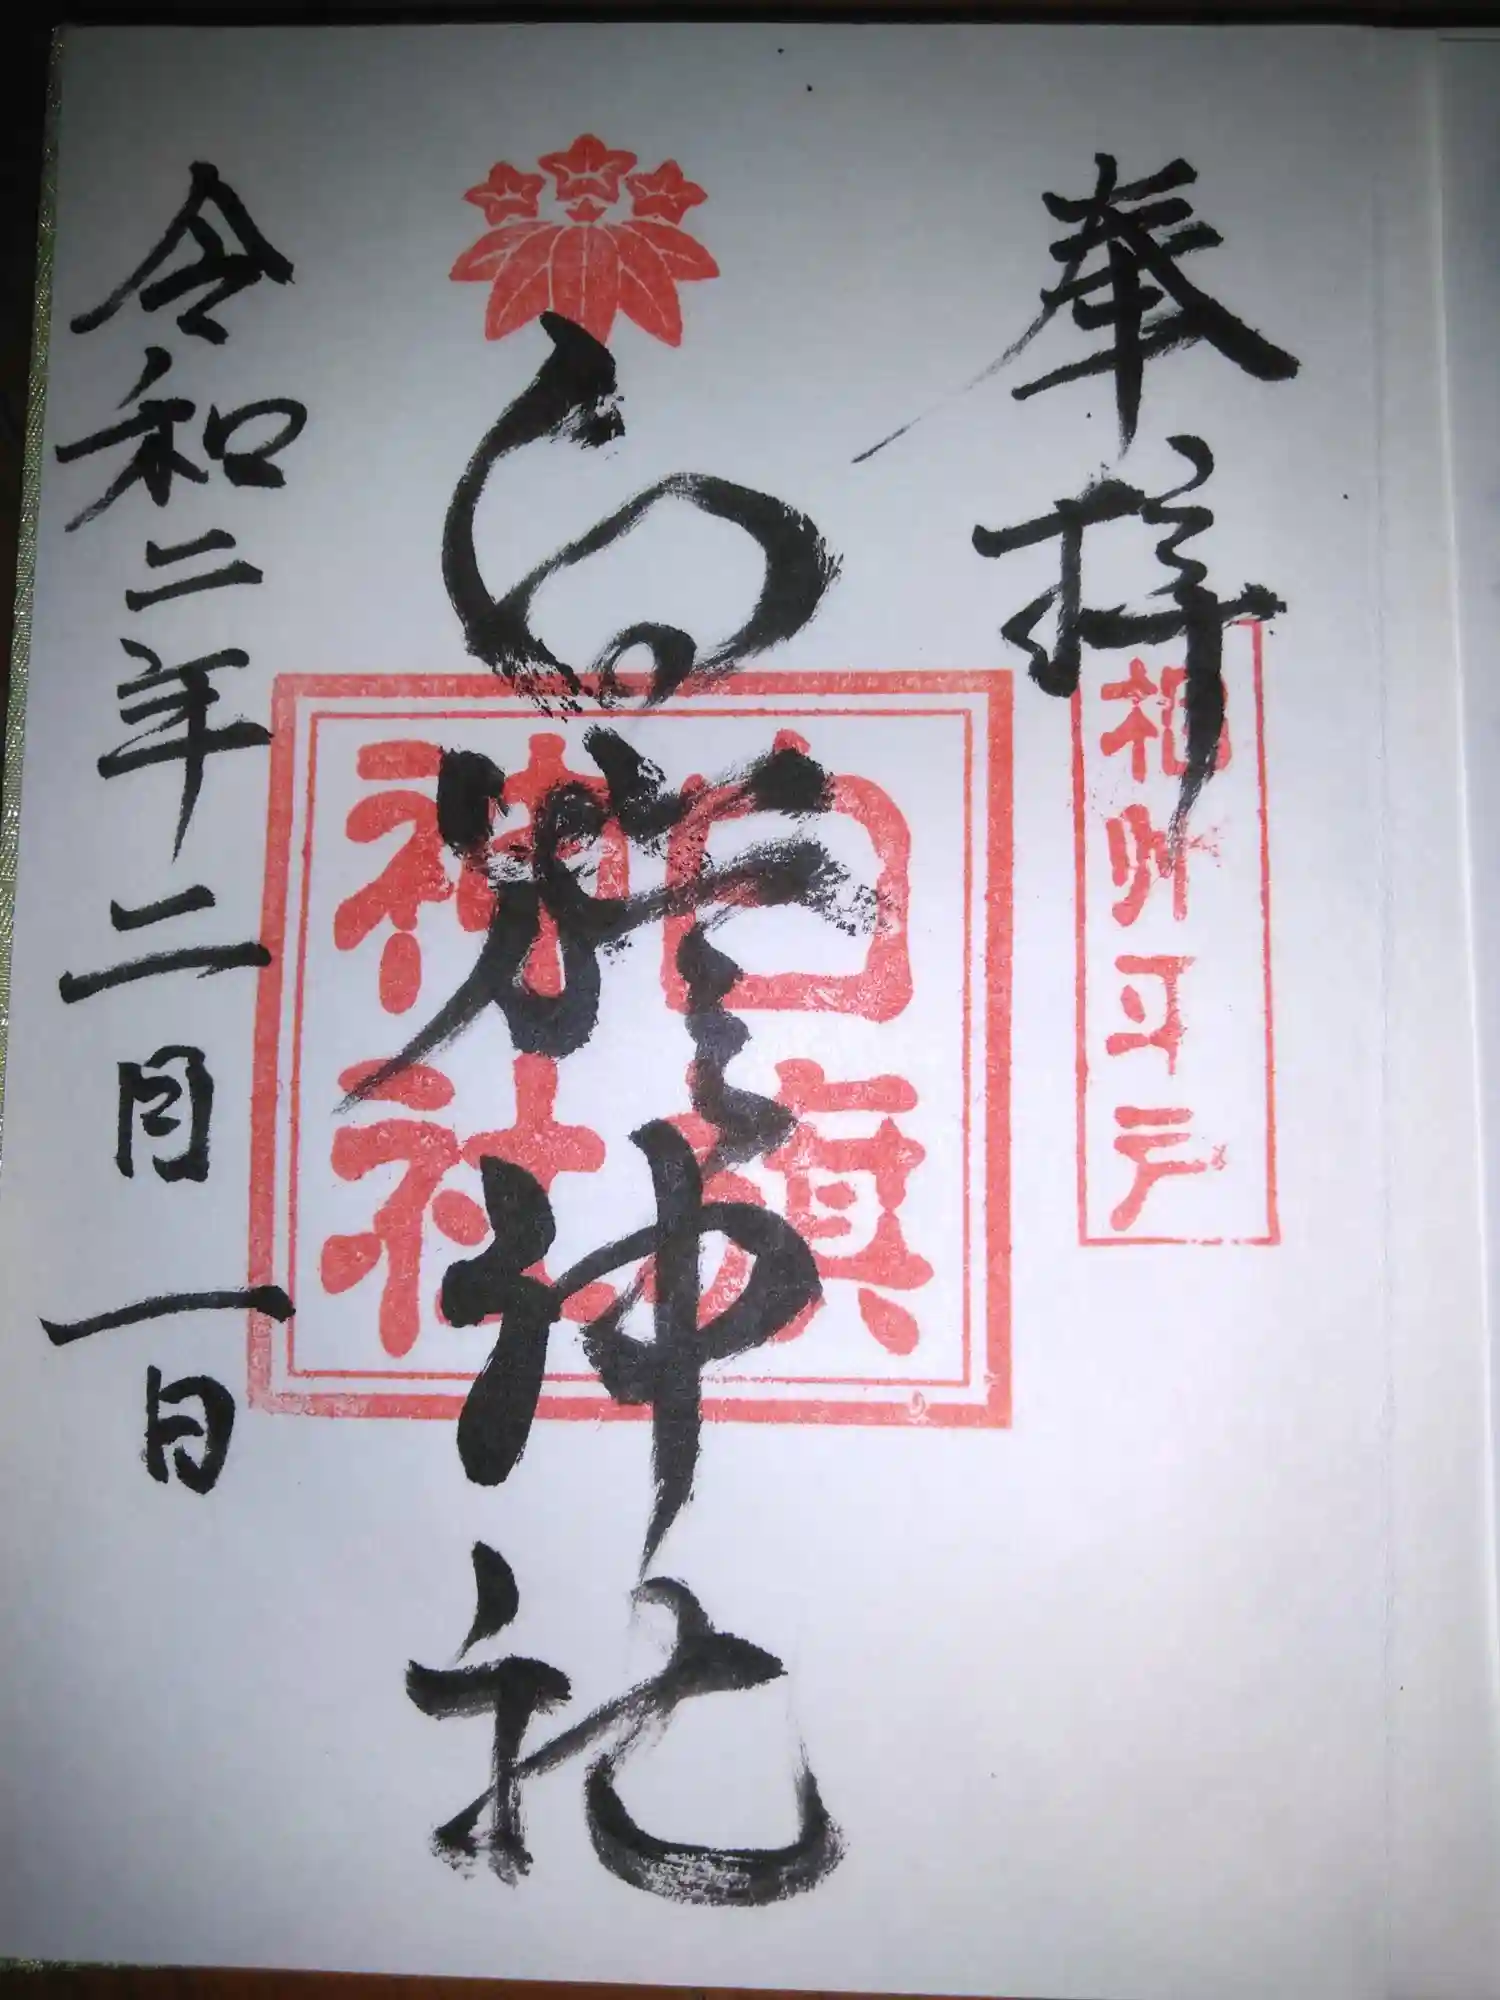 奉拝
相州平戸
白旗神社
白旗
神社
令和二年二月一日